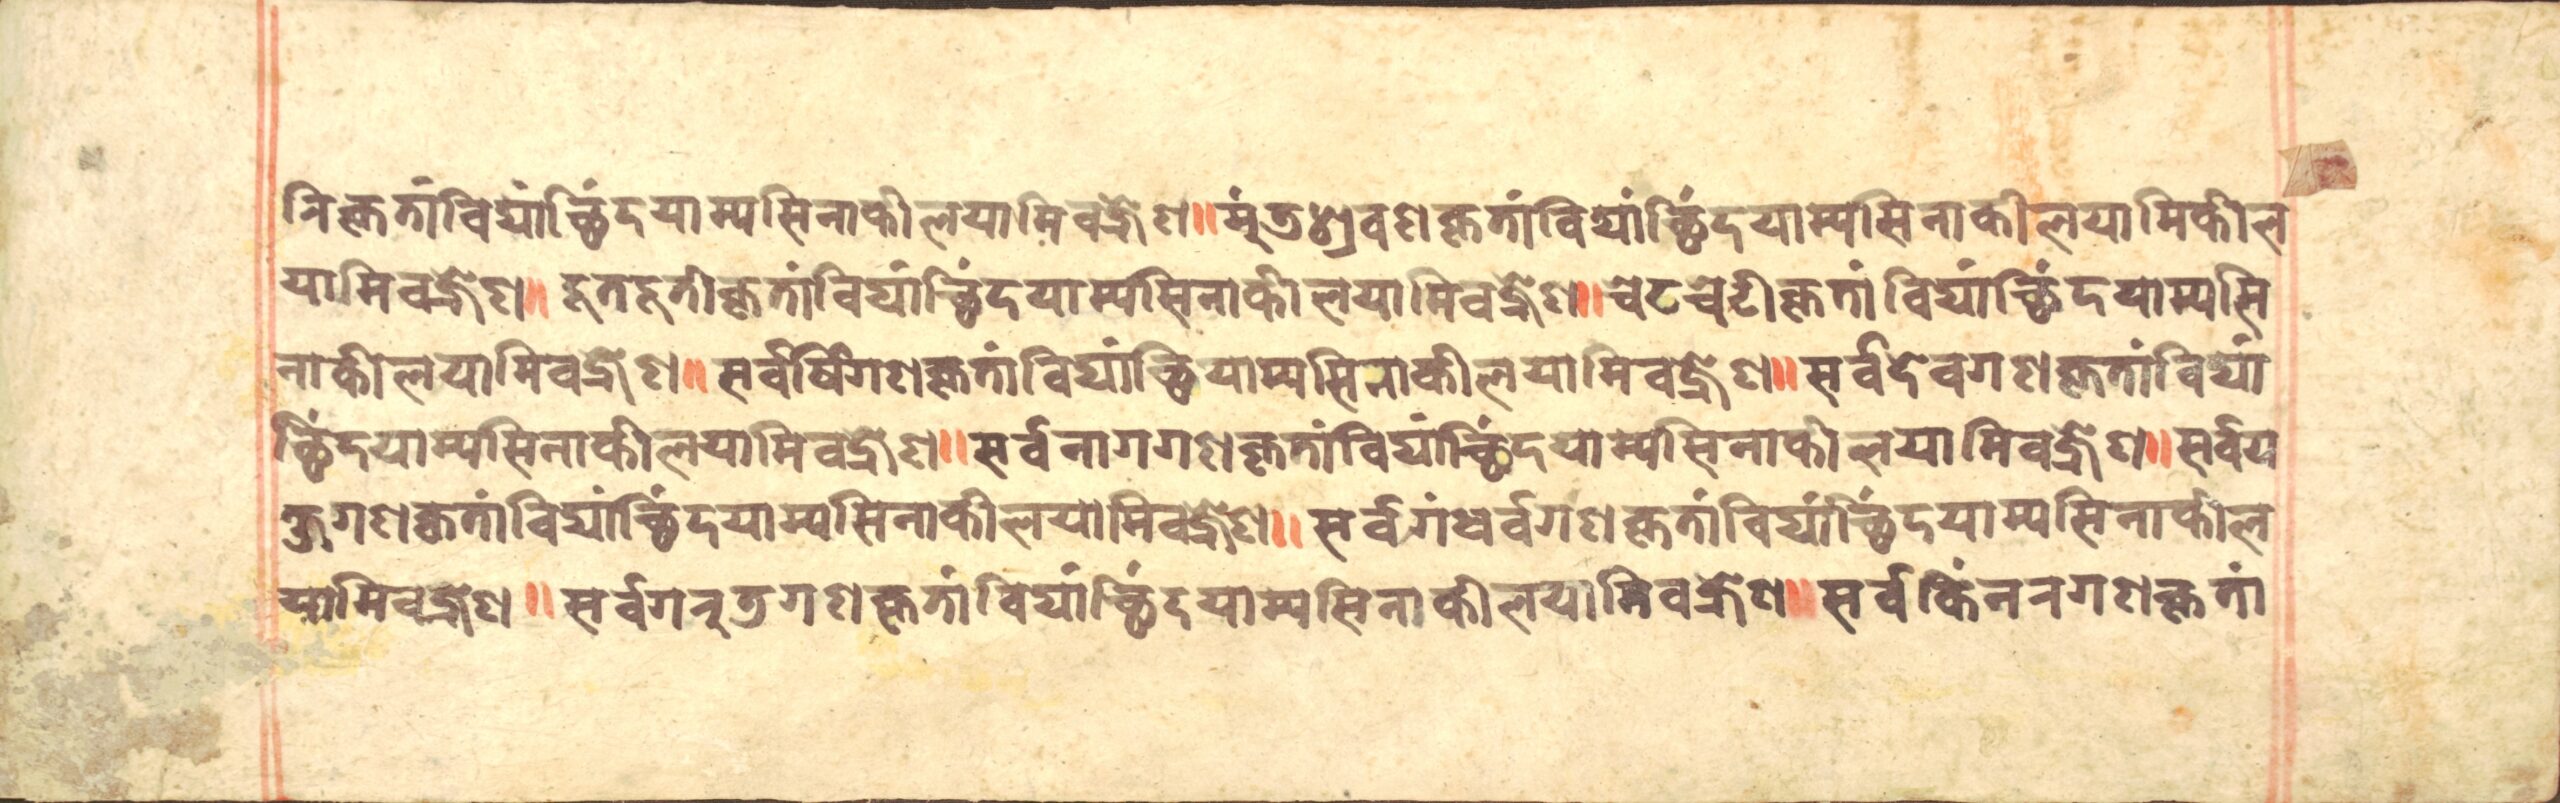 त्रिकृतांविद्यांच्छिंदयाम्यसिनाकीलयामिवज्रेण॥मुंडश्रवणकृतांविद्यांच्छिंदयाम्यसिनाकीलयामिकील
यामिवज्रेण॥दूतदूतीकृतांविद्यांच्छिंदयाम्यसिनाकीलयामिवज्रेण॥चेटचेटीकृतांविद्यांच्छिंदयाम्यसि
नाकीलयामिवज्रेण॥सर्वर्षिगणकृतांविद्यांच्छियाम्यसिनाकीलयामिवज्रेण॥सर्वदेवगणकृतांविद्यां
च्छिंदयाम्यसिनाकीलयामिवज्रेण॥सर्वनागगणकृतांविद्यांच्छिंदयाम्यसिनाकीलयामिवज्रेण॥सर्वय
क्षगणकृतांविद्यांच्छिंदयाम्यसिनाकीलयामिवज्रेण॥सर्वगंधर्वगणकृतांविद्यांच्छिंदयाम्यसिनाकील
यामिवज्रेण॥सर्वगरुडगणकृतांविद्यांच्छिंदयाम्यसिनाकीलयामिवज्रेण॥सर्वकिंनरगणकृतां